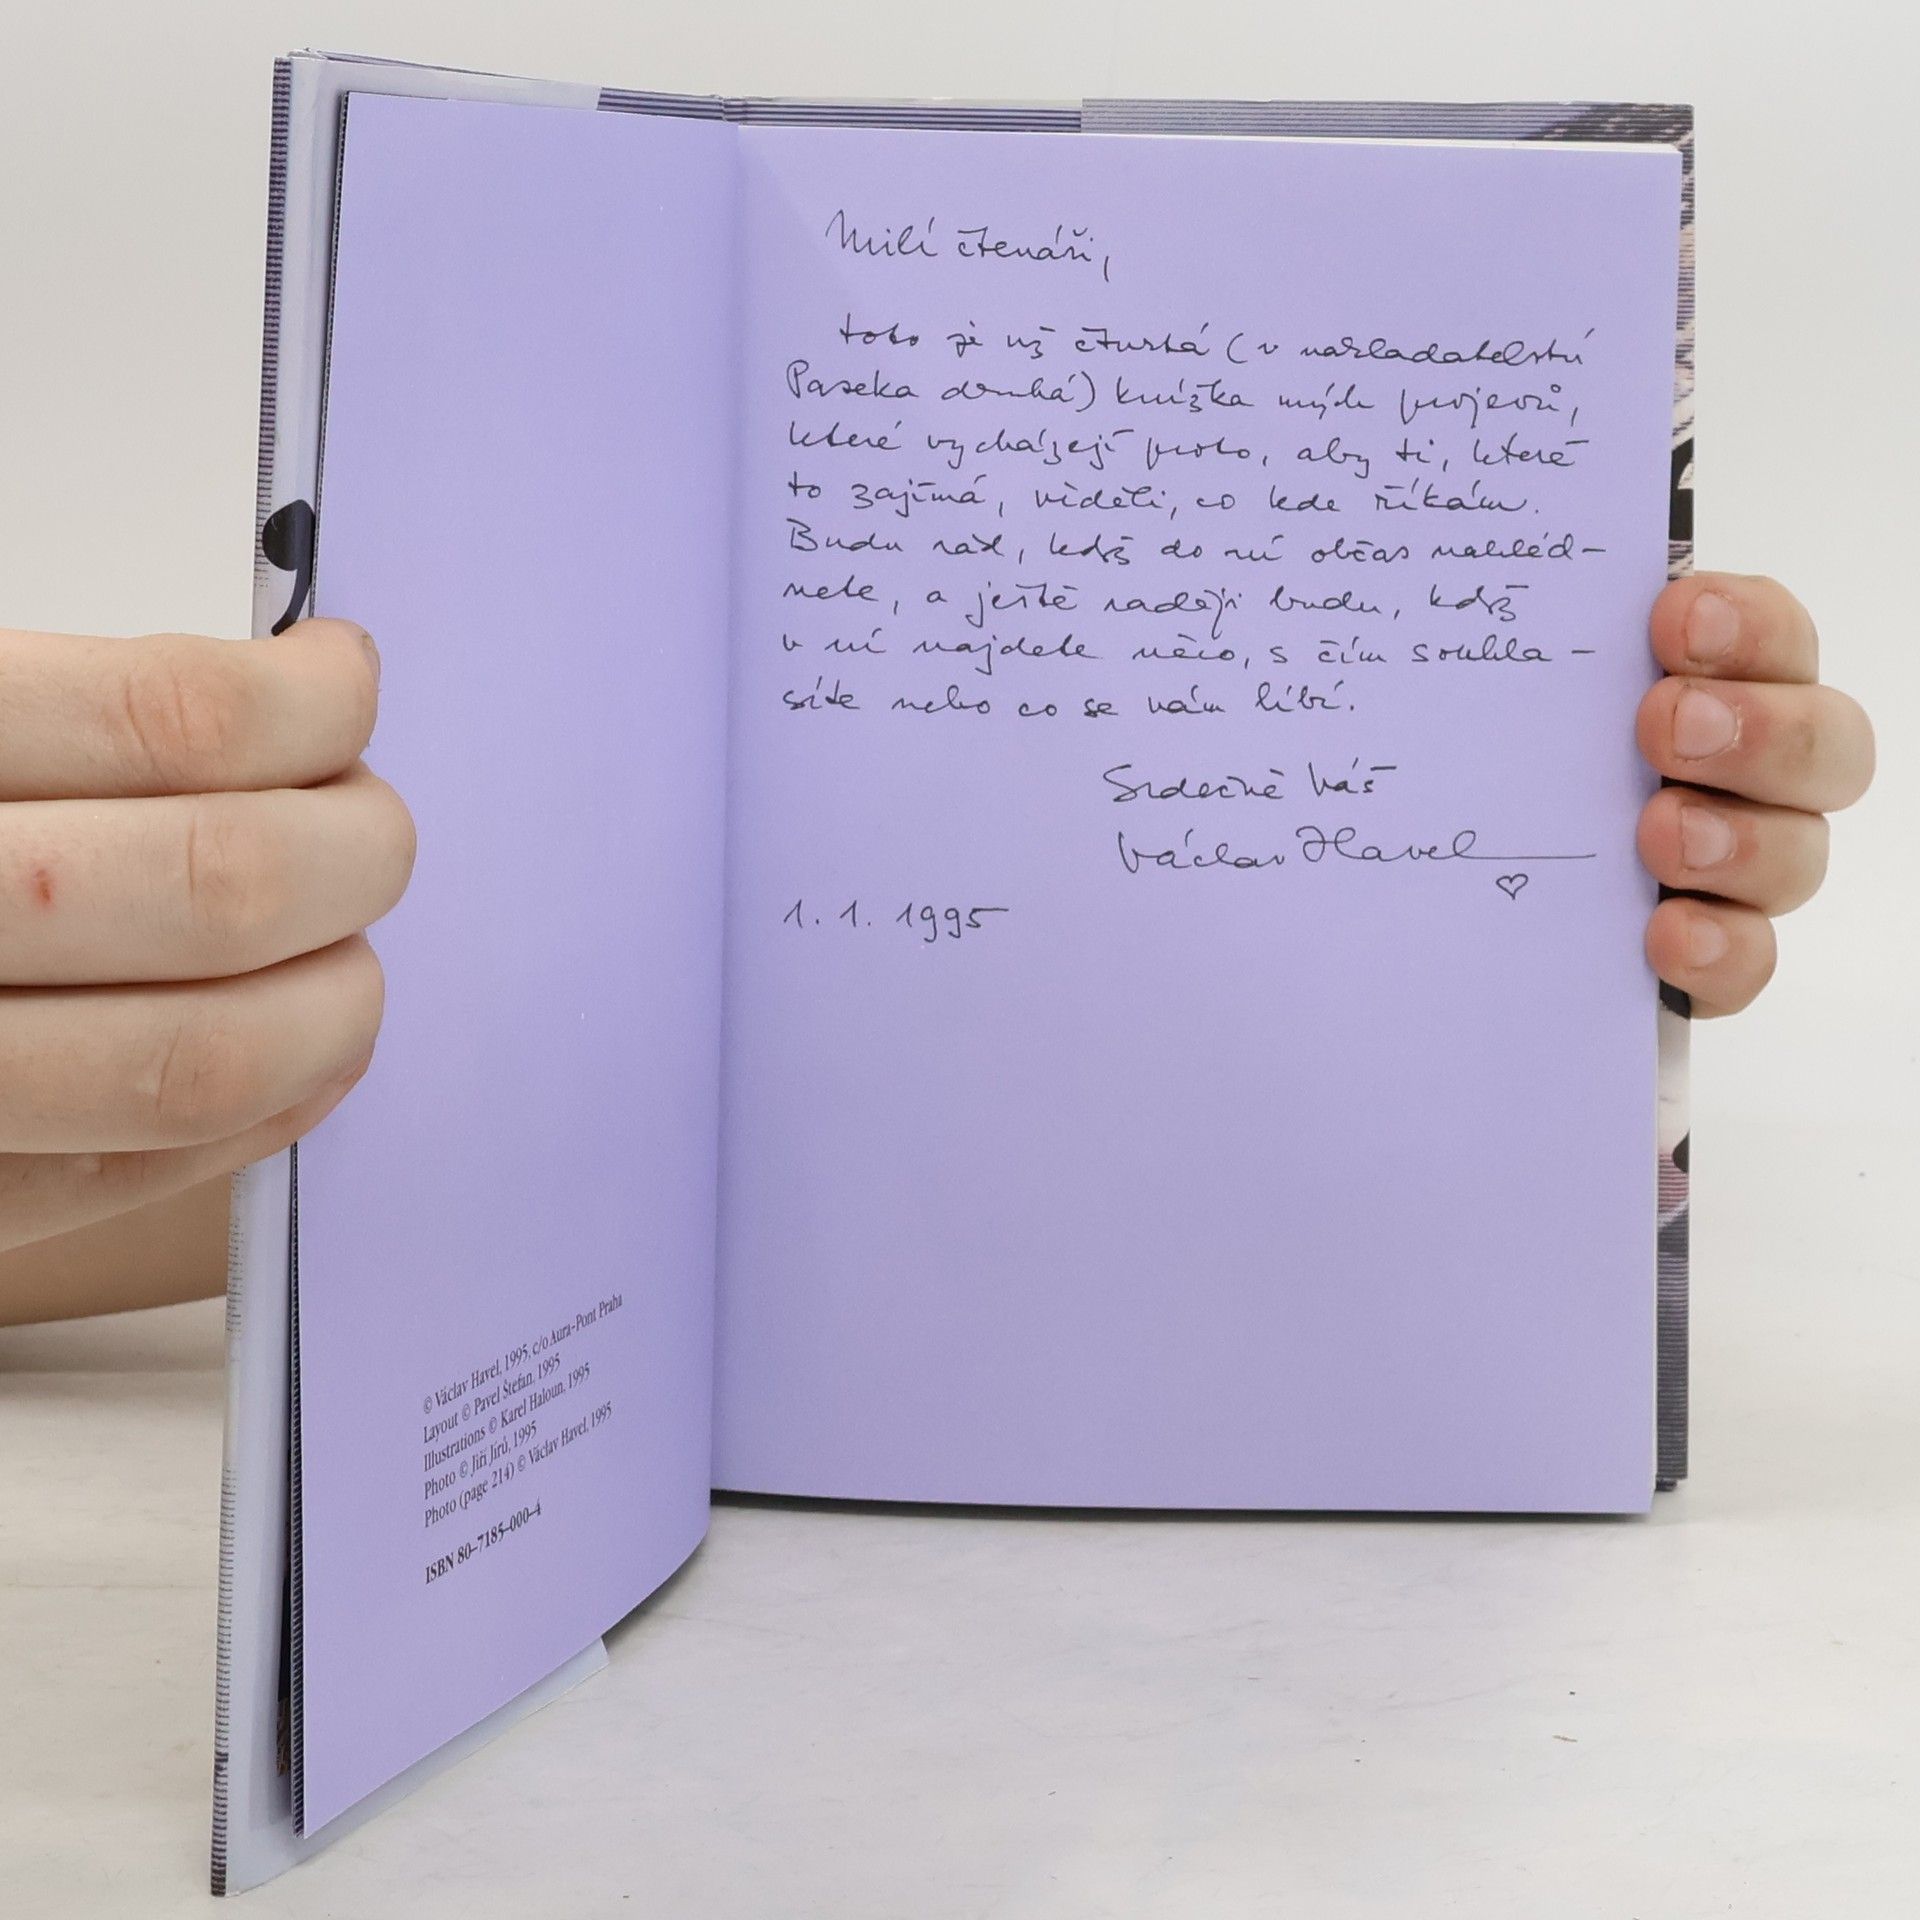 © Václav Havel, 1995, c/o Aura-Pont Praha
Layout © Pavel Štefan, 1995
Illustrations © Karel Haloun, 1995
Photo © Jiří Jírů, 1995
Photo (page 214) © Václav Havel, 1995
ISBN 80–7185–000–4
Milí čtenáři,
toto je už čtvrtá (v nakladatelství
Paseka druhá) knížka mých projevů,
které vycházejí proto, aby ti, které
to zajímá, věděli, co kde říkám.
Budu rád, když do ní občas nahléd-
nete, a ještě raději budu, když
v ní najdete něco, s čím souhla-
síte nebo co se vám líbí.
Srdečně Váš
Václav Havel
1. 1. 1995